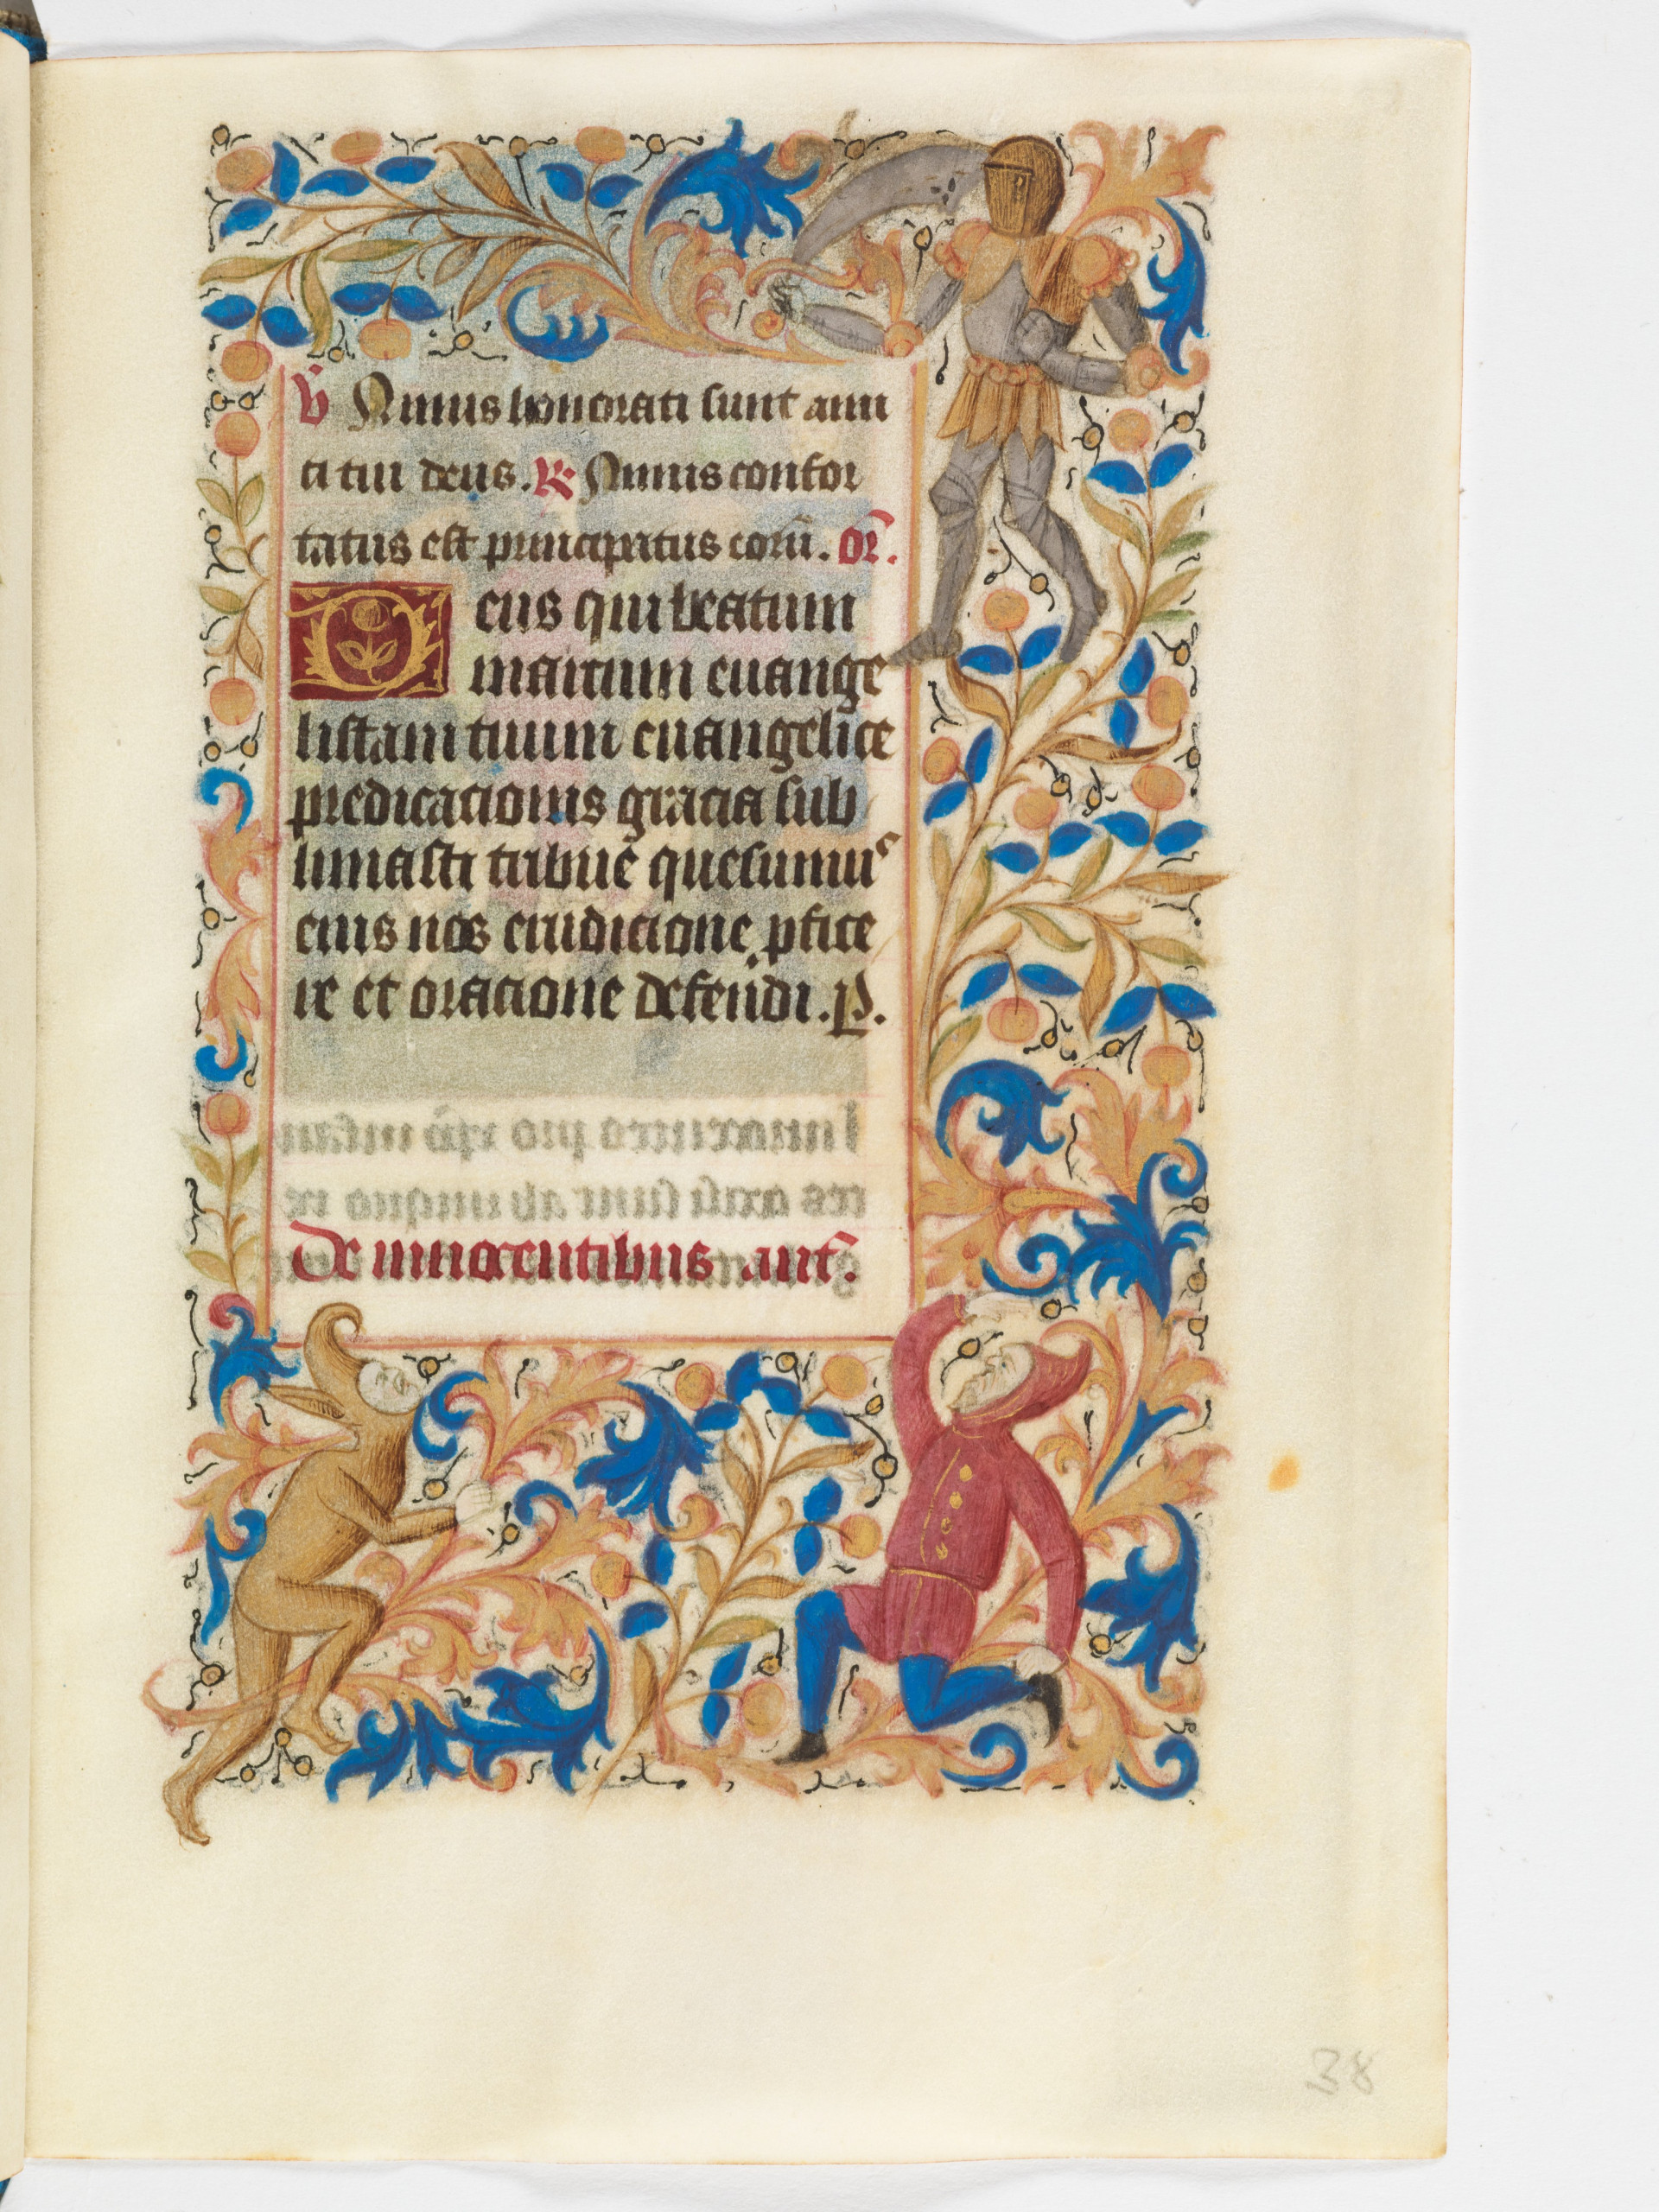 V Nimis honorati sunt ami
ci tui deus. R Nimis confor
tatus est principatus eorū. Or̄.
Deus qui beatum
marcum euange
listam tuum euangelice
predicationis gracia sub
limasti tribue quesumus
eius nos erudicione pfice
re et oracione defendi. P.
De innocentibus ant̄.
38